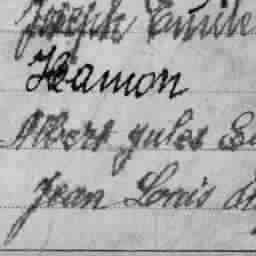 Joseph Emile
Hamon
Albert Jules
Jean Louis